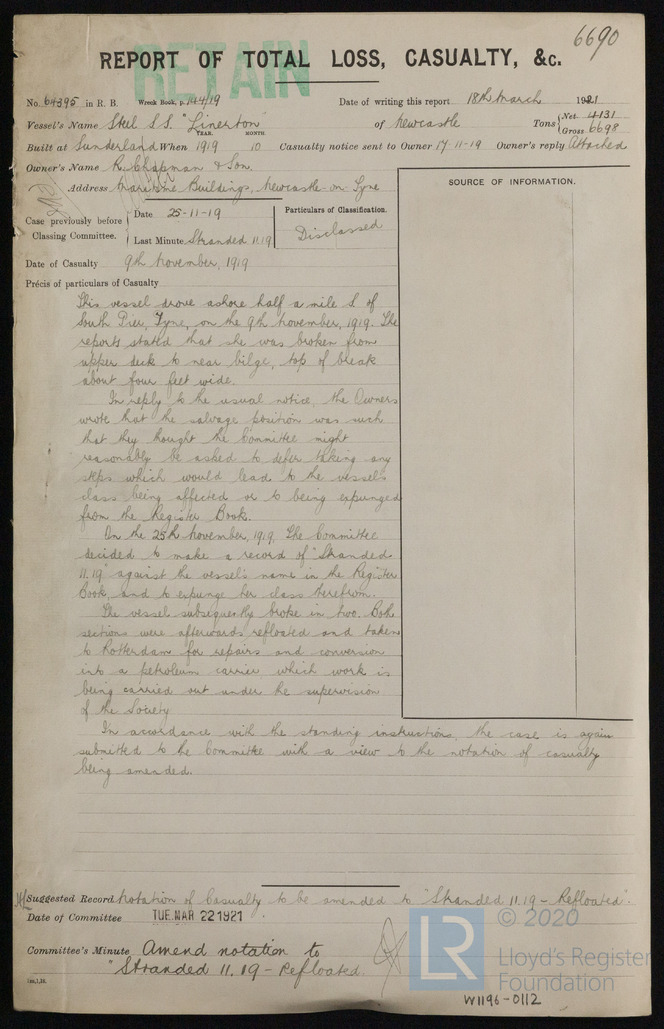 6690
RETAIN
REPORT OF TOTAL LOSS, CASUALTY, &c.
No. 64395 in R. B. Wreck Book, p. 144/19 Date of writing this report 18th March 1921
Vessel's Name Steel S.S. "Linerton" of Newcastle Tons { Net 4131 Gross 6698
YEAR. MONTH
Built at Sunderland When 1919 10 Casualty notice sent to Owner 17-11-19 Owner's reply Attached
Owner's Name R. Chapman & Son.
Address Maritime Buildings, Newcastle-on-Tyne
SOURCE OF INFORMATION.
Case previously before Classing Committee. { Date 25-11-19
Last Minute Stranded 11.19
Particulars of Classification.
Disclassed
Date of Casualty 9th November, 1919
Précis of particulars of Casualty
This vessel drove ashore half a mile S. of
South Pier, Tyne, on the 9th November, 1919. The
reports stated that she was broken from
upper deck to near bilge, top of break
about four feet wide.
In reply to the usual notice, the Owners
wrote that the salvage position was such
that they thought the Committee might
reasonably be asked to defer taking any
steps which would lead to the vessel's
class being affected or to being expunged
from the Register Book.
On the 25th November, 1919, the Committee
decided to make a record of "Stranded
11.19" against the vessel's name in the Register
Book, and to expunge her class therefrom.
The vessel subsequently broke in two. Both
sections were afterwards refloated and taken
to Rotterdam for repairs and conversion
into a petroleum carrier which work is
being carried out under the supervision
of the Society
In accordance with the standing instructions, the case is again
submitted to the Committee with a view to the notation of casualty
being amended.
Suggested Record Notation of Casualty to be amended to "Stranded 11.19 - Refloated".
Date of Committee TUE. MAR 22 1921
Committee's Minute Amend notation to
"Stranded 11.19 - Refloated
LR
© 2020
Lloyd's Register
Foundation
W1196-0112